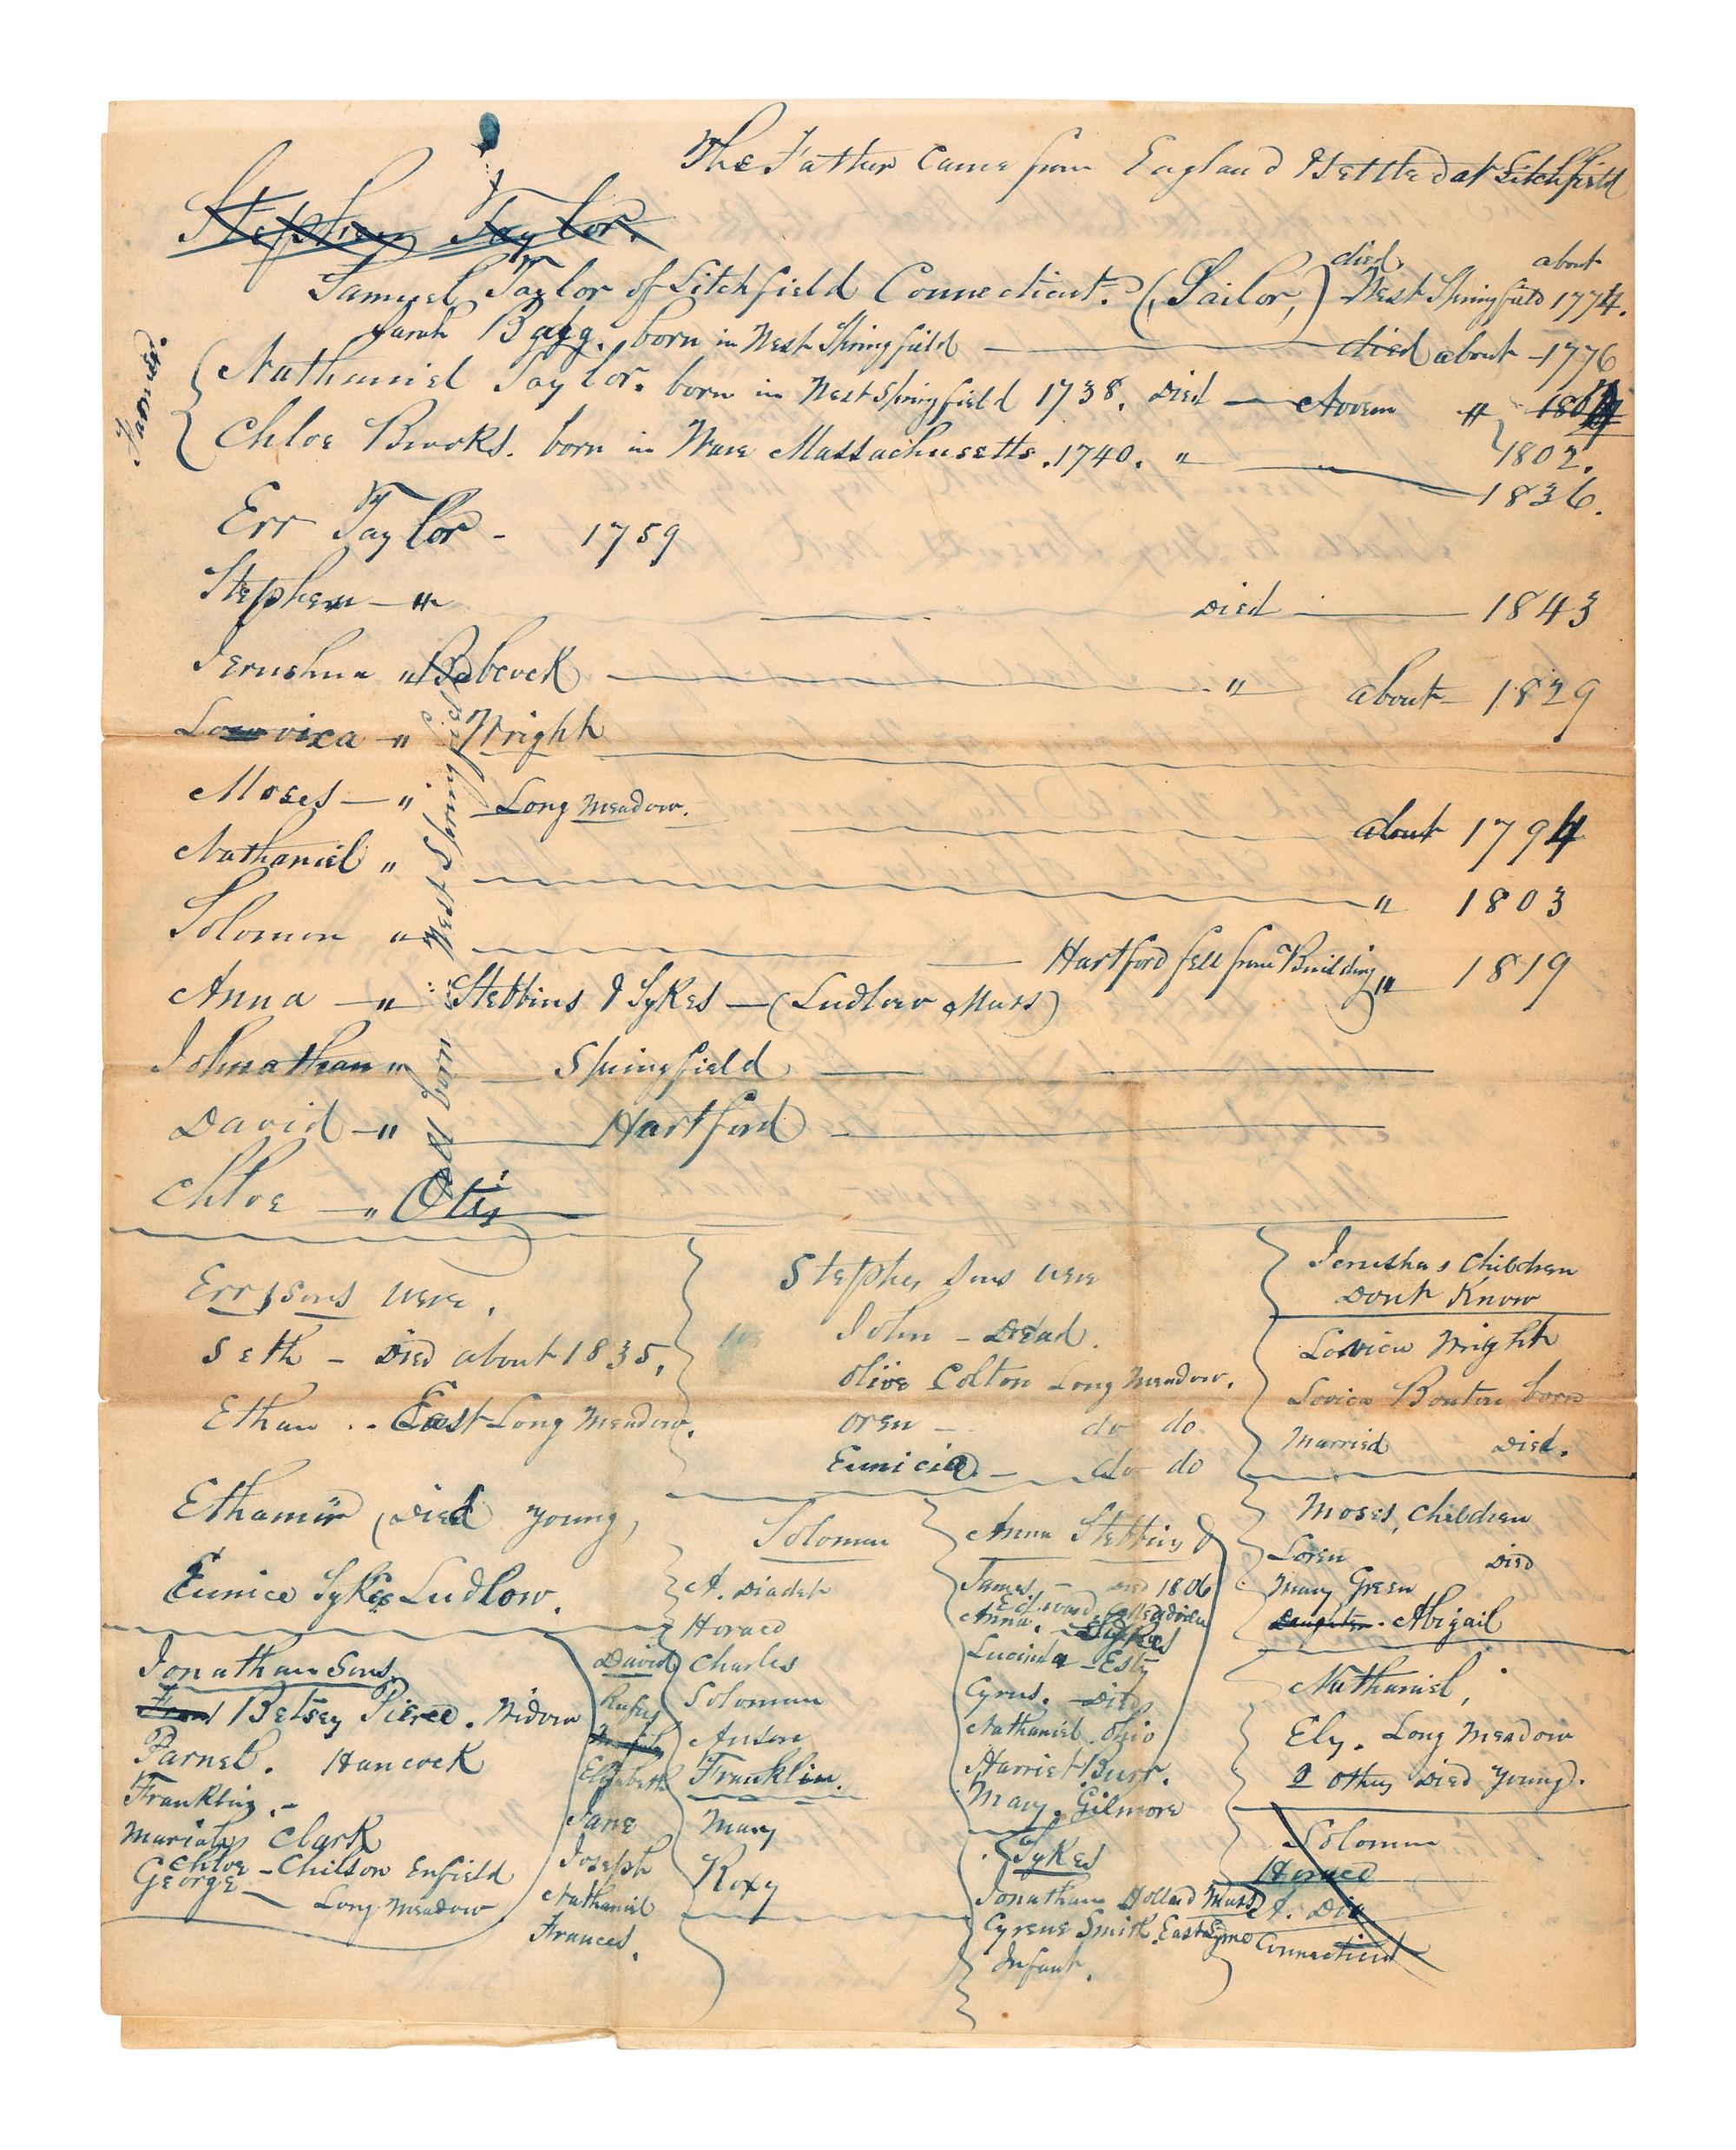 The Father Came from England & Settled at Litchfield
Stephen Taylor.
died, about
Samuel Taylor of Litchfield Connecticut. (Sailor,) West Springfield 1774.
Sarah Bagg. born in West Springfield died about 1776
Farmer
Nathaniel Taylor. born in West Springfield 1738. Died
Chloe Brooks. born in Ware Massachusetts. 1740. " 1802.
Err Taylor - 1759 1836.
Stephen - " Died 1843
Jerushua " Babcock " about 1829
Lovica " Wright
Moses - " Long Meadow. about 1794
Nathaniel " " 1803
Solomon " Hartford fell from Building " 1819
Anna - " Stebbins & Sykes - (Ludlow Mass)
Johnathan " Springfield
David - " Hartford
Chloe - " Otis
All born West Springfield
Errs Sons were.
Seth - Died about 1835.
Ethan .. East Long Meadow.
Ethamir (Died Young)
Eunice Sykes Ludlow.
Stephes Sons were
John - Dead.
Olive Colton Long Meadow.
Oren - do do
Eunicia - do do
Jerushas Children
Dont Know
Lovica Wright
Lovica Bouton born
Married Died.
Solomon
A. Diadet
Horace
Charles
Solomon
Anson
Franklin.
Mary
Roxy
Anna Stebbins &
James, - Died 1806
Edward
Anna. - Sykes
Lucinda - Esty
Cyrus. - Died
Nathaniel. Ohio
Harriet Burr.
Mary. Gilmore
Sykes
Jonathan Holland Mass
Cyrene Smith East Lyme Connecticut
Infant.
Moses, Children
Loren Died
Mary Green
Daughter. Abigail
Nathaniel,
Ely. Long Meadow
2 others Died Young.
Solomon
Horace
A. Dia
Jonathan Sons
Betsey Pierce. Widow
Parnel. Hancock
Franklin. -
Mariah Clark
Chloe - Chilson Enfield
George - Long Meadow
David
Rufus
Elizabeth
Jane
Joseph
Nathaniel
Frances.